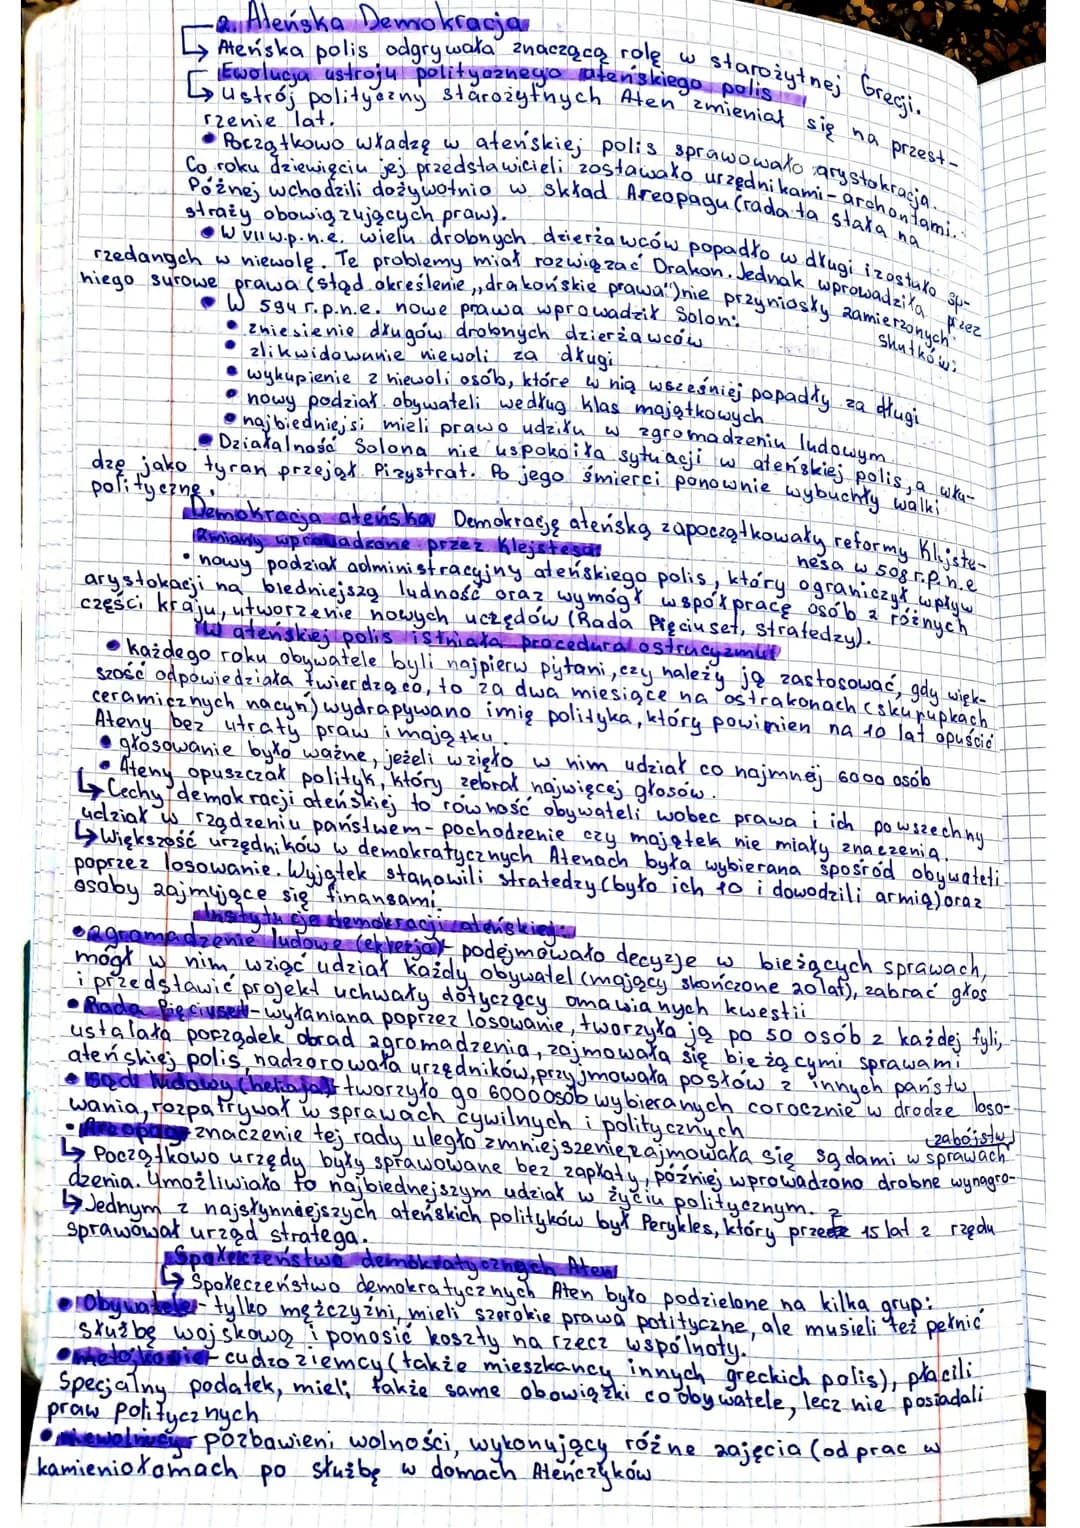 2. Ateńska Demokracja
↳ Ateńska polis odgrywała znaczącą rolę w starożytnej Grecji.
Ewolucja ustroju politycznego ateńskiego polis
↳ Ustrój polityczny starożytnych Aten zmieniał się na przest-
rzenie lat.
• Początkowo władzę w ateńskiej polis sprawowało arystokracja.
Co roku dziewięciu jej przedstawicieli zostawało urzędnikami - archontami.
Późnej wchodzili dożywotnio w skład Areopagu (rada ta stała na
straży obowiązujących praw).
• W VII w.p.n.e. wielu drobnych dzierżawców popadło w długi i zostało sp-
rzedanych w niewolę. Te problemy miał rozwiązać Drakon. Jednak wprowadziła przez
niego surowe prawa (stąd określenie „drakońskie prawa") nie przyniosły zamierzonych
skutków:
• W 594 r.p.n.e. nowe prawa wprowadził Solon:
• zniesienie długów drobnych dzierżawców
• zlikwidowanie niewoli za długi
• wykupienie z niewoli osób, które w nią wcześniej popadły za długi
• nowy podział obywateli według klas majątkowych
• najbiedniejsi mieli prawo udziłu w zgromadzeniu ludowym
• Działalność Solona nie uspokoiła sytuacji w ateńskiej polis, a wła-
dzę jako tyran przejął Pizystrat. Po jego śmierci ponownie wybuchły walki
polityczne.
Demokracja ateńska Demokrację ateńską zapoczątkowały reformy Klijste-
nesa w 508 r.p.n.e
Zmiany wprowadzone przez Klejstesa:
• nowy podział administracyjny ateńskiego polis, który ograniczył wpływ
arystokacji na biedniejszą ludność oraz wymógł współpracę osób z różnych
części kraju, utworzenie nowych uczędów (Rada Pięciuset, stratedzy).
W ateńskiej polis istniała procedura ostracyzmu:
• każdego roku obywatele byli najpierw pytani, czy należy ją zastosować, gdy więk-
szość odpowiedziała twierdząco, to za dwa miesiące na ostrakonach (skupupkach
ceramicznych nacyń) wydrapywano imię polityka, który powinien na 10 lat opuścić
Ateny bez utraty praw i majątku.
• głosowanie było ważne, jeżeli wzięło w nim udział co najmnej 6000 osób
• Ateny opuszczał polityk, który zebrał najwięcej głosów.
↳ Cechy demokracji ateńskiej to równość obywateli wobec prawa i ich powszechny
udział w rządzeniu państwem - pochodzenie czy majątek nie miały znaczenia.
↳ Większość urzędników w demokratycznych Atenach była wybierana spośród obywateli
poprzez losowanie. Wyjątek stanowili stratedzy (było ich 10 i dowodzili armią) oraz
osoby zajmujące się finansami.
Instytucje demokracji ateńskiej:
• zgromadzenie ludowe (eklezja) - podejmowało decyzje w bieżących sprawach,
mógł w nim wziąć udział każdy obywatel (mający skończone 20 lat), zabrać głos
i przedstawić projekt uchwały dotyczący omawianych kwestii
• Rada Pięciuset - wyłaniana poprzez losowanie, tworzyła ją po 50 osób z każdej fyli,
ustalała porządek obrad zgromadzenia, zajmowała się bieżącymi sprawami
ateńskiej polis, nadzorowała urzędników, przyjmowała posłów z innych państw
• Sąd ludowy (heliaja) - tworzyło go 6000 osób wybieranych corocznie w drodze loso-
wania, rozpatrywał w sprawach cywilnych i politycznych
• Areopag - znaczenie tej rady uległo zmniejszenie, zajmowała się sądami w sprawach zabójstw
↳ Początkowo urzędy były sprawowane bez zapłaty, później wprowadzono drobne wynagro-
dzenia. Umożliwiało to najbiednejszym udział w życiu politycznym.
↳ Jednym z najsłynnejszych ateńskich polityków był Perykles, który przez 15 lat z rzędu
sprawował urząd stratega.
Społeczeństwo demokratycznych Aten
↳ Społeczeństwo demokratycznych Aten było podzielone na kilka grup:
• Obywatele - tylko mężczyźni, mieli szerokie prawa polityczne, ale musieli też pełnić
służbę wojskową i ponosić koszty na rzecz wspólnoty.
• metojkowie - cudzoziemcy (także mieszkańcy innych greckich polis), płacili
specjalny podatek, mieli także same obowiązki co obywatele, lecz nie posiadali
praw politycznych
• niewolnicy - pozbawieni wolności, wykonujący różne zajęcia (od prac w
kamieniołomach po służbę w domach Ateńczyków